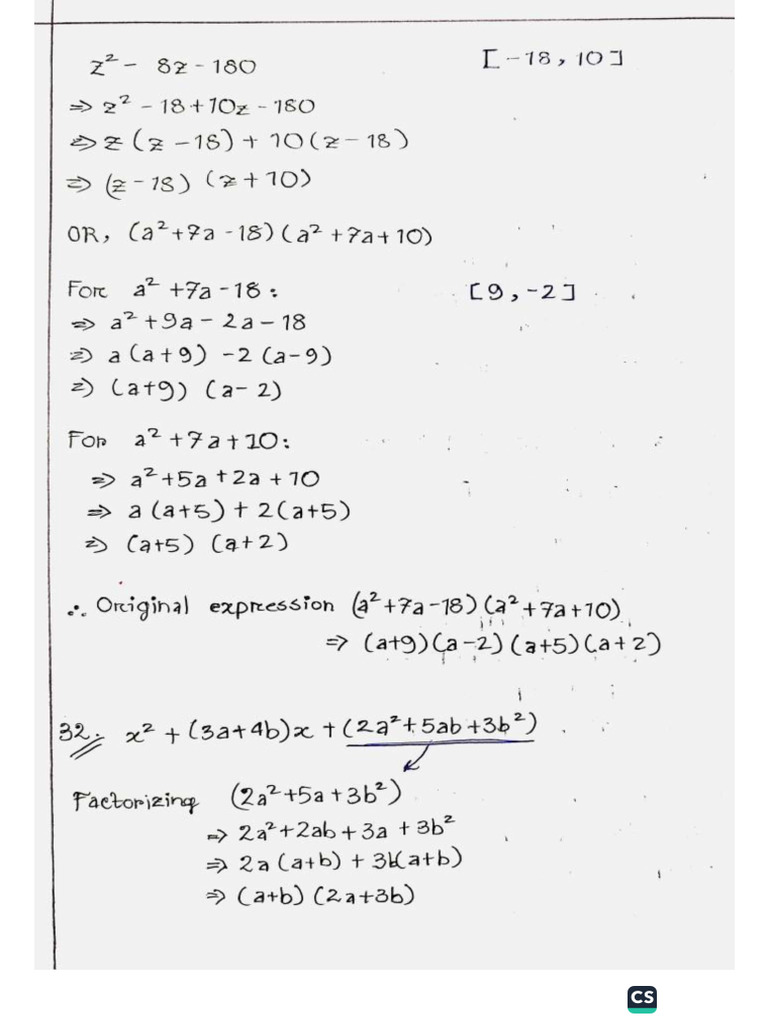 z² - 8z - 180 [-18, 10]
⇒ z² - 18 + 10z - 180
⇒ z (z - 18) + 10 (z - 18)
⇒ (z - 18) (z + 10)
OR, (a² + 7a - 18) (a² + 7a + 10)
For a² + 7a - 18 : [9, -2]
⇒ a² + 9a - 2a - 18
⇒ a (a + 9) - 2 (a - 9)
⇒ (a+9) (a - 2)
For a² + 7a + 10 :
⇒ a² + 5a + 2a + 10
⇒ a (a+5) + 2 (a+5)
⇒ (a+5) (a+2)
∴ Original expression (a² + 7a - 18) (a² + 7a + 10)
⇒ (a+9) (a-2) (a+5) (a+2)
32. x² + (3a+4b)x + (2a² + 5ab + 3b²)
Factorizing (2a² + 5a + 3b²)
⇒ 2a² + 2ab + 3a + 3b²
⇒ 2a (a+b) + 3b(a+b)
⇒ (a+b) (2a+3b)
CS